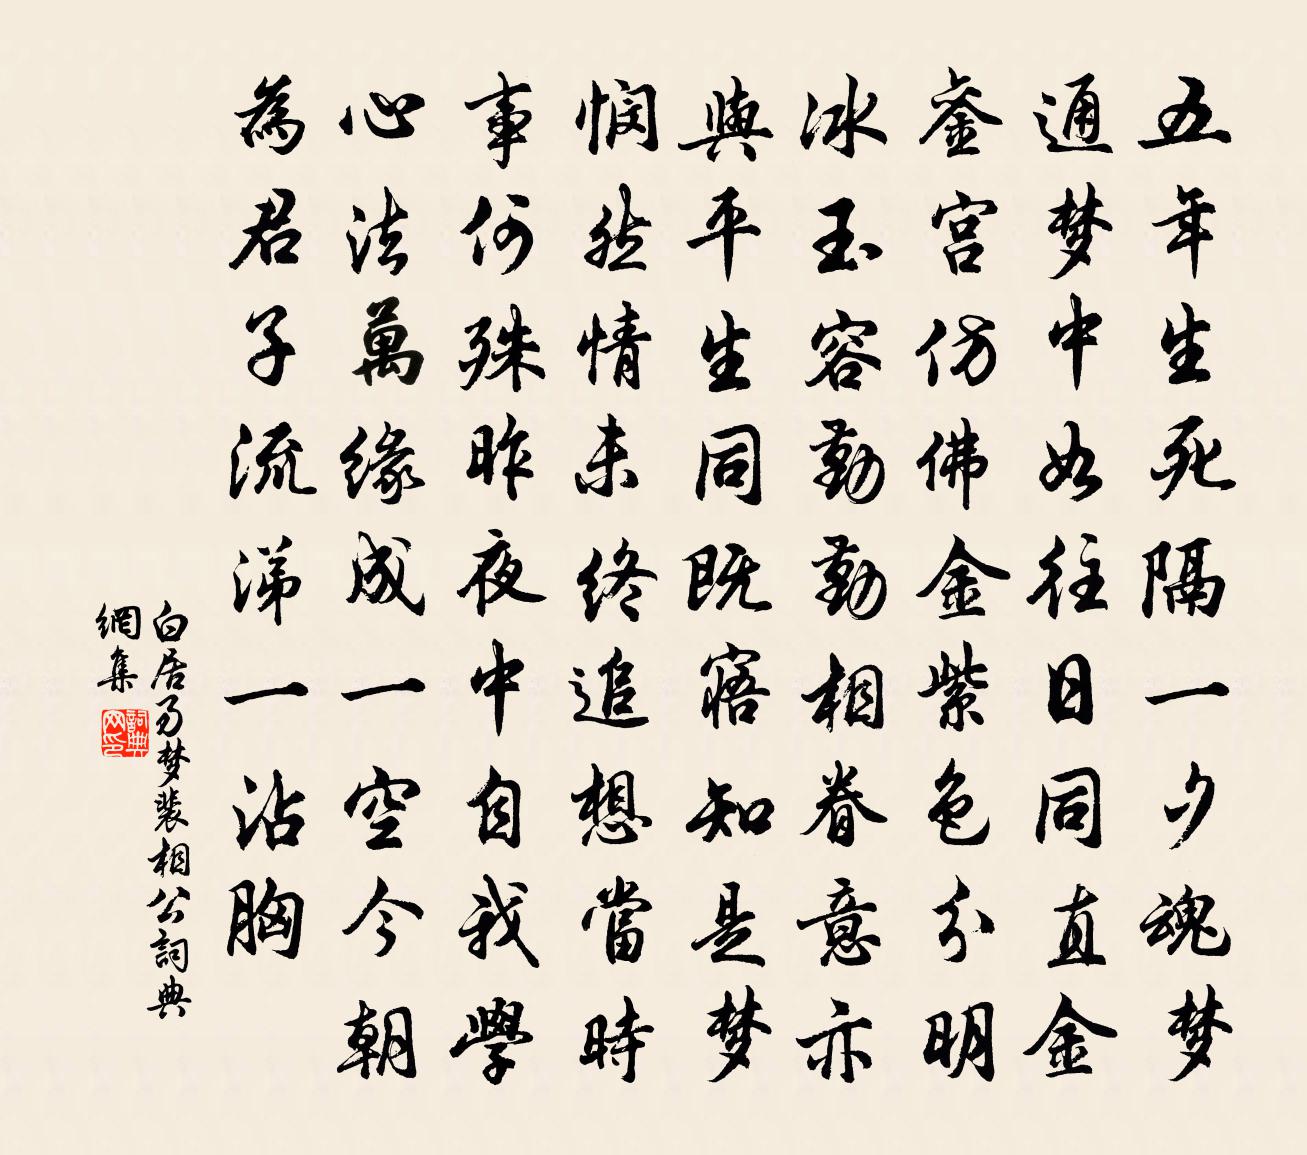 五年生死隔一夕魂梦
通梦中如往日同直金
銮宫仿佛金紫色分明
冰玉容勤勤相眷意亦
與平生同既寤知是梦
悯然情未终追想當時
事何殊昨夜中自我學
心法萬缘成一空今朝
為君子流涕一沾胸
白居易梦裴相公詞典
網集
詞典
网印